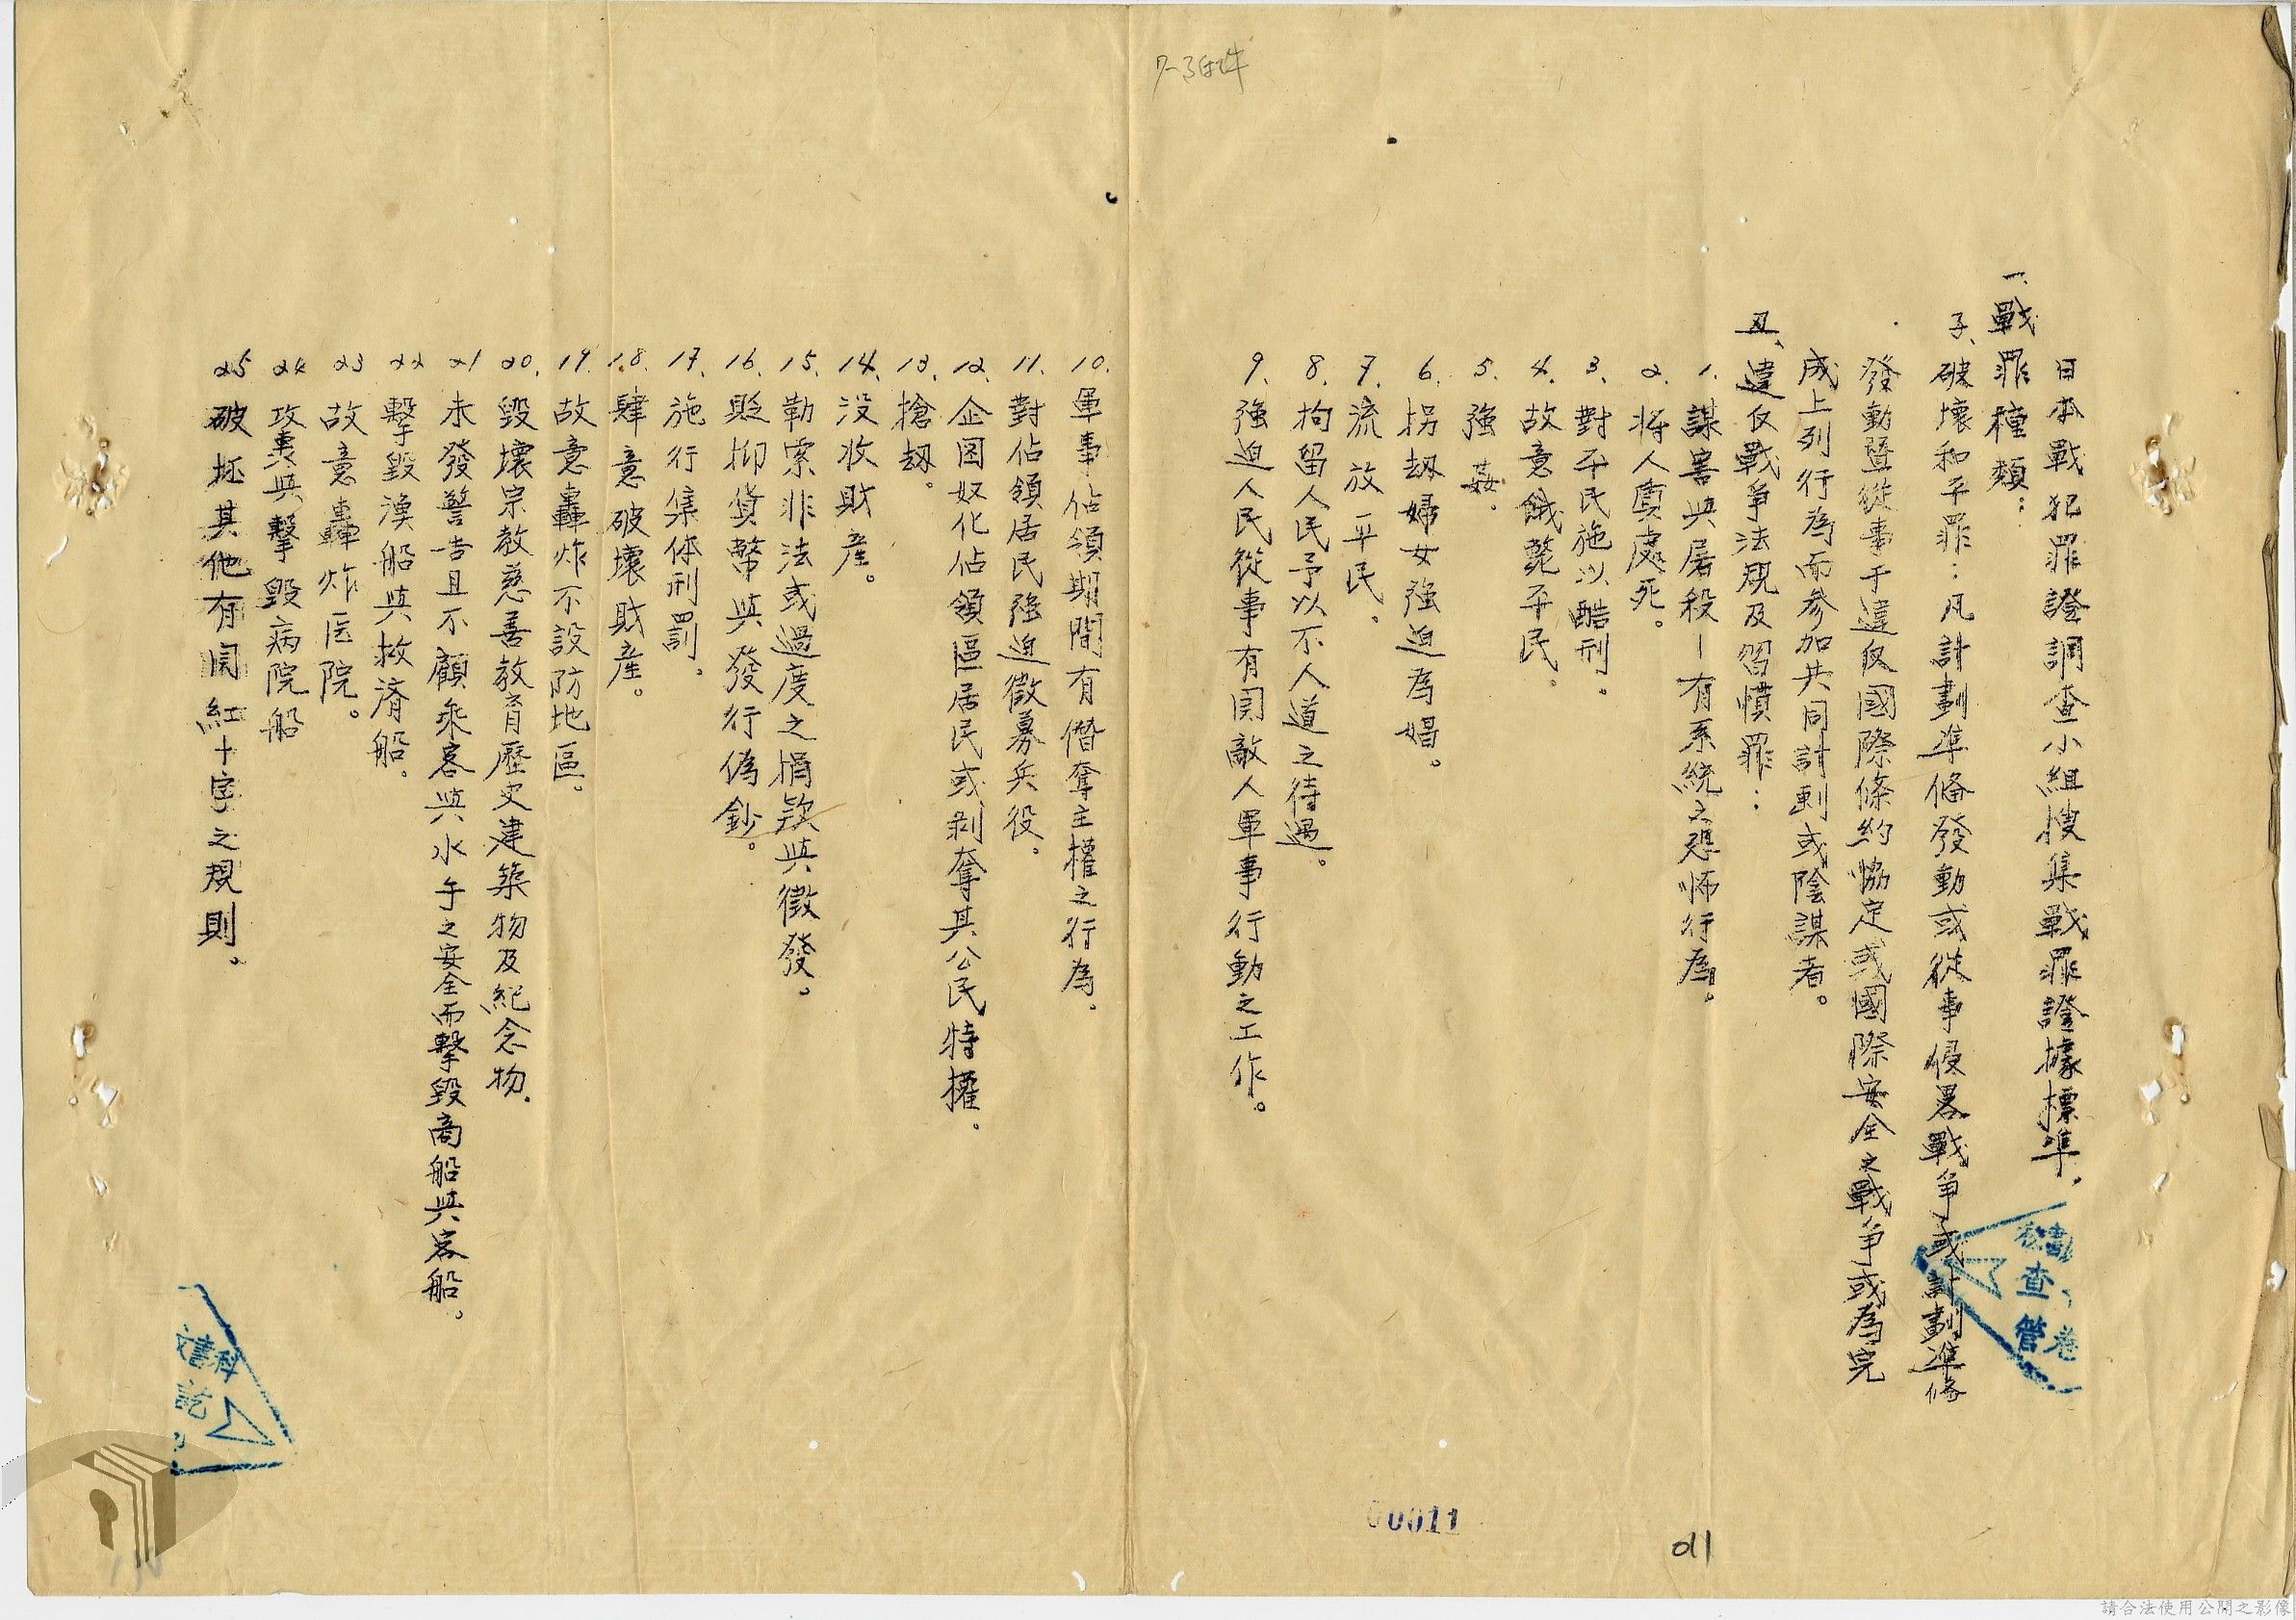 日本戰犯罪證調查小組搜集戰罪證據標準.
一、戰罪種類：
子、破壞和平罪：凡計劃準備發動或從事侵畧戰爭或計劃準俻
發動暨從事于違反國際條約協定或國際安全之戰爭或為完
成上列行為而參加共同計劃或陰謀者。
丑、違反戰爭法規及習慣罪：
1. 謀害與屠殺—有系統之恐怖行為。
2. 將人質處死。
3. 對平民施以酷刑。
4. 故意餓斃平民.
5. 強姦.
6. 拐刼婦女強迫為娼。
7. 流放平民.
8. 拘留人民予以不人道之待遇。
9. 強迫人民從事有関敵人軍事行動之工作。
10. 軍事佔領期間有僭奪主權之行為.
11. 對佔領居民強迫徵募兵役。
12. 企図奴化佔領區居民或剥奪其公民特權。
13. 搶刼。
14. 没收財産。
15. 勒索非法或過度之捐款與徵發。
16. 貶抑貨幣與發行偽鈔。
17. 施行集体刑罰.
18. 肆意破壞財産。
19. 故意轟炸不設防地區.
20. 毀壞宗教慈善教育歷史建築物及紀念物.
21 未發警告且不顧乘客與水手之安全而擊毀商船與客船。
22 擊毀漁船與救済船.
23 故意轟炸医院。
24 攻擊與擊毀病院船
25 破坏其他有関紅十字之規則。
00011
011
查
管卷
科
請合法使用公開之影像